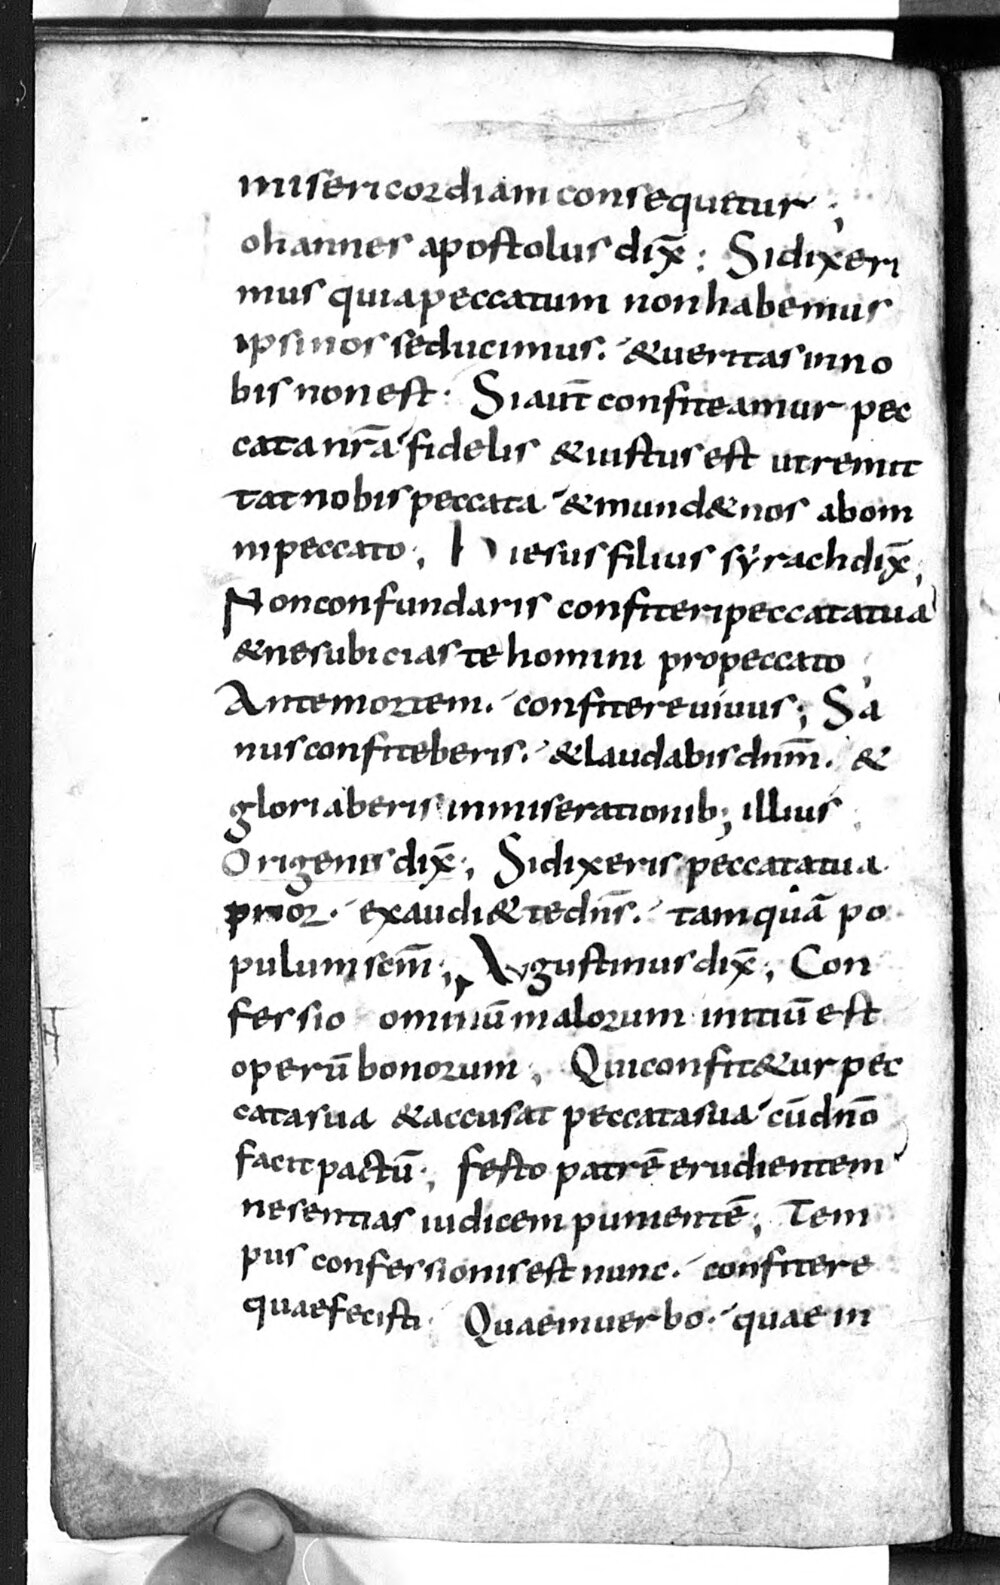 misericordiam consequetur;
ohannes apostolus dix̄; Si dixeri
mus quia peccatum non habemus
ipsi nos seducimus. & ueritas in no
bis non est. Si aut̄ confiteamur pec
cata nr̄a fidelis & iustus est ut remit
tat nobis peccata & mund& nos ab om
ni peccato; H iesus filius syrach dix̄;
Non confundaris confiteri peccata tua
& ne subicias te homini pro peccato;
Ante mortem. confitere uiuus; Sa
nus confiteberis. & laudabis dn̄m. &
gloriaberis in miserationib; illius;
Origenis dix̄; Si dixeris peccata tua
prior. exaudi& te dn̄s. tamquā po
pulum sc̄m; Augustinus dix̄; Con
fessio omniū malorum initiū est
operū bonorum; Qui confit&ur pec
cata sua & accusat peccata sua cū dn̄o
facit pactū; festo patrē erudientem
ne sentias iudicem punientē; Tem
pus confessionis est nunc. confitere
quae fecisti. Quae in uerbo. quae in